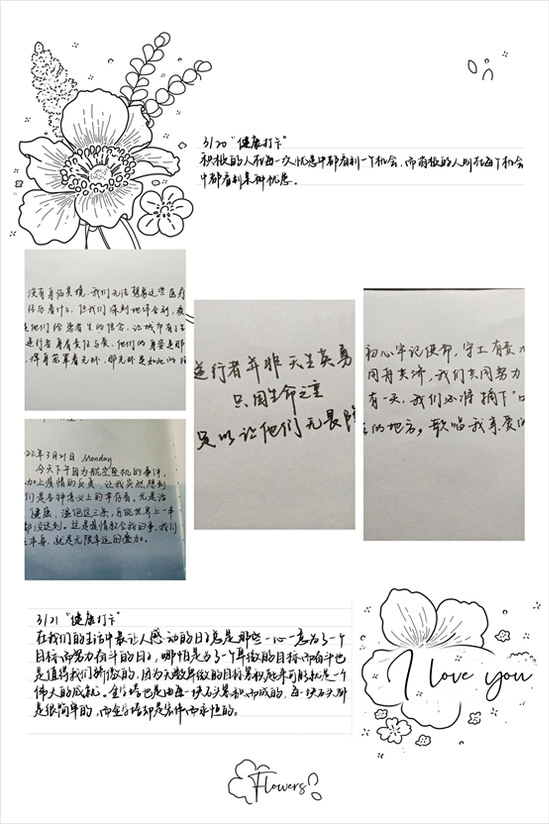 3/20 "健康打卡"
积极的人在每一次忧患中都看到一个机会，而消极的人则在每个机会
中都看到某种忧患。
没有身临其境，我们无法想象这些医疗
经历着什么，但我们深刻地体会到，
是他们给患者生的信念，让城市有了
逆行者肩负责任与
逆行者并非天生英勇
只因生命之重
足以让他们无畏
初心牢记使命，守土有责
同舟共济，我们共同努力
有一天，我们必将摘下口
的地方，歌唱我亲爱的
22年3月21日 Monday
今天下午因为航空坠机的事件，
加上疫情的反复，让我突然想到
们是各种意义上的幸存者。无是治
健康，温饱这三条，可能世界上一半
都没达到。这是疫情教会我的事，我们
本身，就是无限幸运的叠加。
3/21 "健康打卡"
在我们的生活中最让人感动的日子总是那些一心一意为了一个
目标而努力奋斗的日子，哪怕是为了一个卑微的目标而奋斗也
是值得我们骄傲的，因为无数卑微的目标累积起来可能就是一个
伟大的成就。金字塔也是由每一块石头累积而成的，每一块石头都
是很简单的，而金字塔却是宏伟而永恒的。
I love you
Flowers